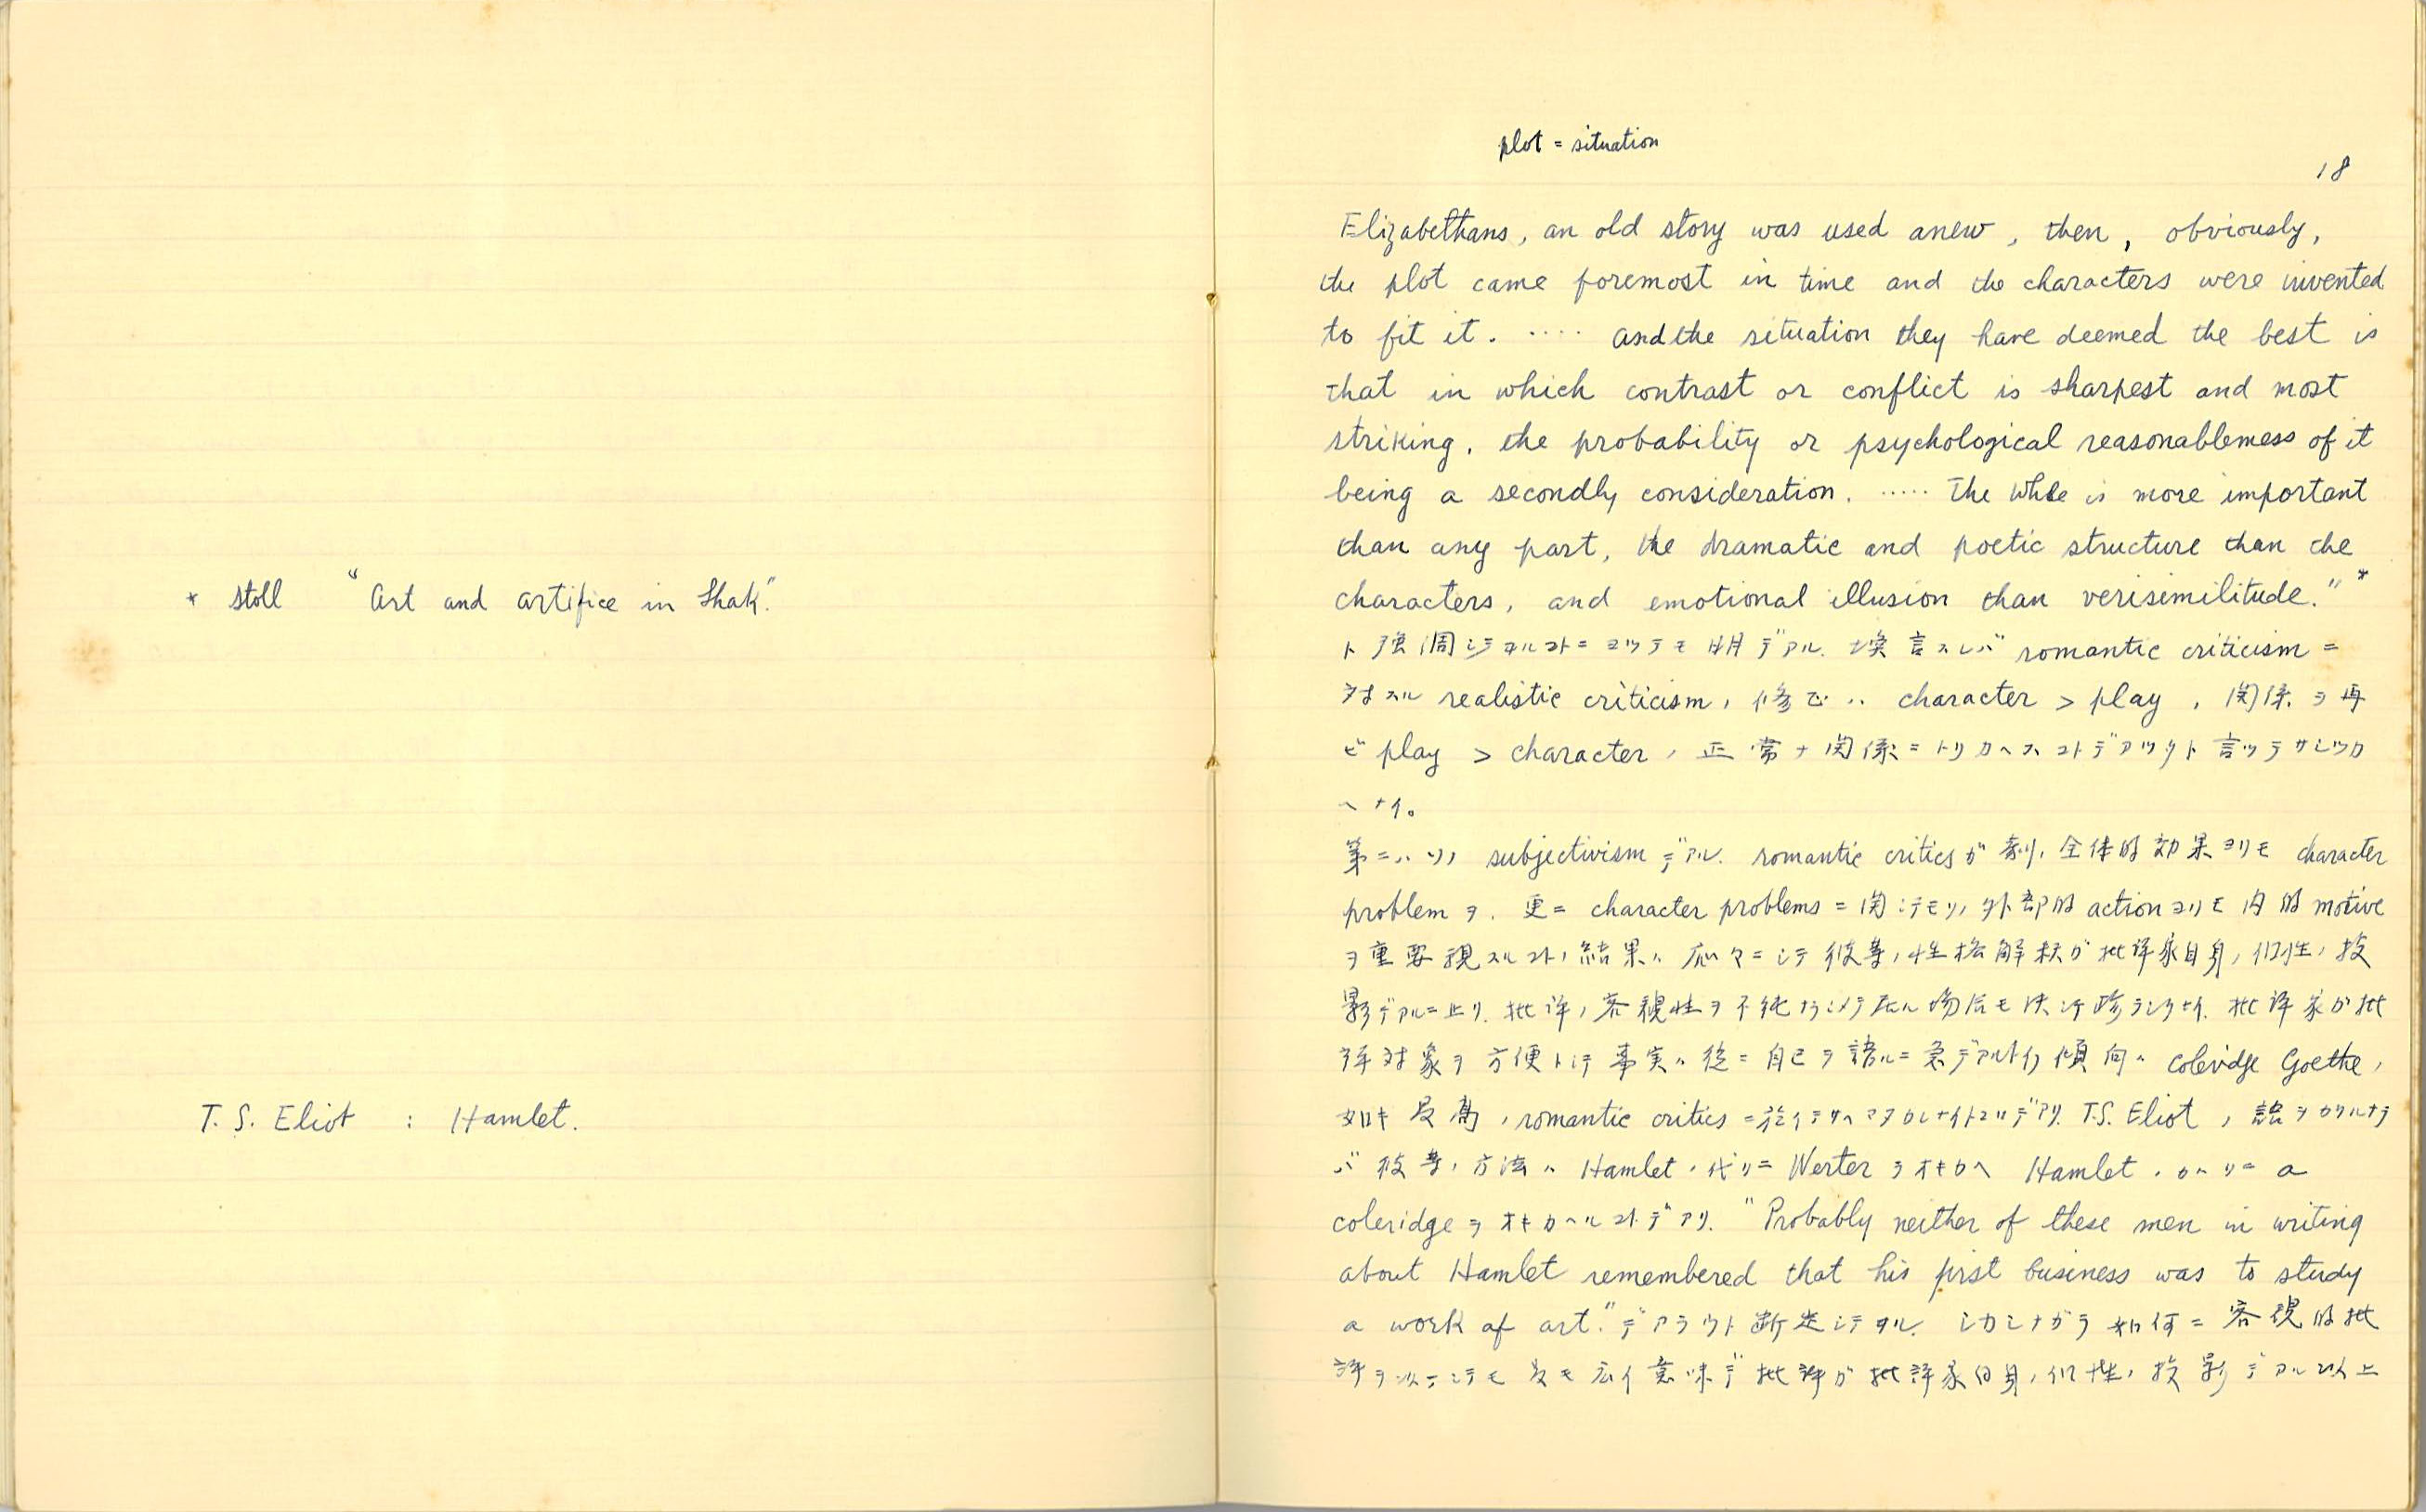 * Stoll "Art and artifice in Shak."
T. S. Eliot : Hamlet.
plot = situation
18
Elizabethans, an old story was used anew, then, obviously,
the plot came foremost in time and the characters were invented
to fit it. .... and the situation they have deemed the best is
that in which contrast or conflict is sharpest and most
striking, the probability or psychological reasonableness of it
being a secondly consideration. ..... The whole is more important
than any part, the dramatic and poetic structure than the
characters, and emotional illusion than verisimilitude." *
ト強調シテヰルコトニヨッテモ明デアル. 換言スレバ romantic criticism ニ
対スル realistic criticism ノ修正ハ character > play ノ関係ヲ再
ビ play > character ノ正常ナ関係ニトリカヘスコトデアッタト言ッテサシツカ
ヘナイ。
第二ハソノ subjectivism デアル. romantic critics ガ劇ノ全体的効果ヨリモ character
problem ヲ. 更ニ character problems ニ関シテモソノ外部的 action ヨリモ内的 motive
ヲ重要視スルコトノ結果ハ 応々ニシテ彼等ノ性格解釈ガ批評家自身ノ個性ノ投
影デアルニ止リ. 批評ノ客観性ヲ不純ナラシメテ居ル場合モ決シテ珍ラシクナイ. 批評家ガ批
評対象ヲ方便トシテ事実ハ徒ニ自己ヲ語ルニ急デアルトイフ傾向ハ Coleridge Goethe ノ
如キ最高ノ romantic critics ニ於イテサヘマヌカレナイトコロデアリ. T.S. Eliot ノ言ヲカリルナラ
バ彼等ノ方法ハ Hamlet ノ代リニ Werter ヲオキカヘ Hamlet ノカハリニ a
coleridge ヲオキカヘルコトデアリ. "Probably neither of these men in writing
about Hamlet remembered that his first business was to study
a work of art." デアラウト断定シテヰル. シカシナガラ如何ニ客観的批
評ヲ以テシテモ最モ広イ意味デ批評ガ批評家自身ノ個性ノ投影デアル以上